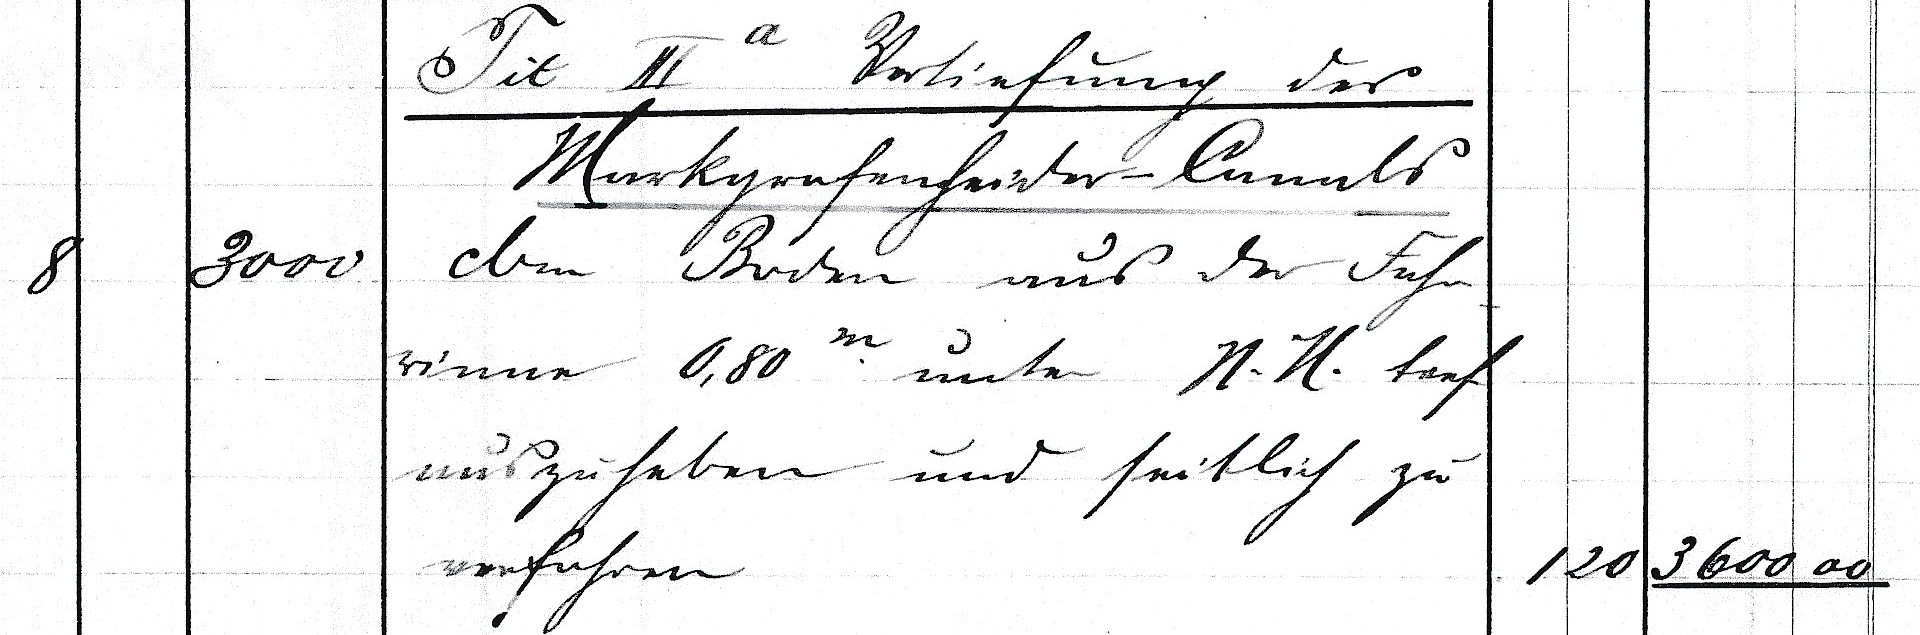 Tit III a Vertiefung des
Markgrafenheider-Canals
8 3000 cbm Boden aus der Fahr-
rinne 0,80 m unter N.N. tief
auszuheben und seitlich zu
verfahren 120 3600 00